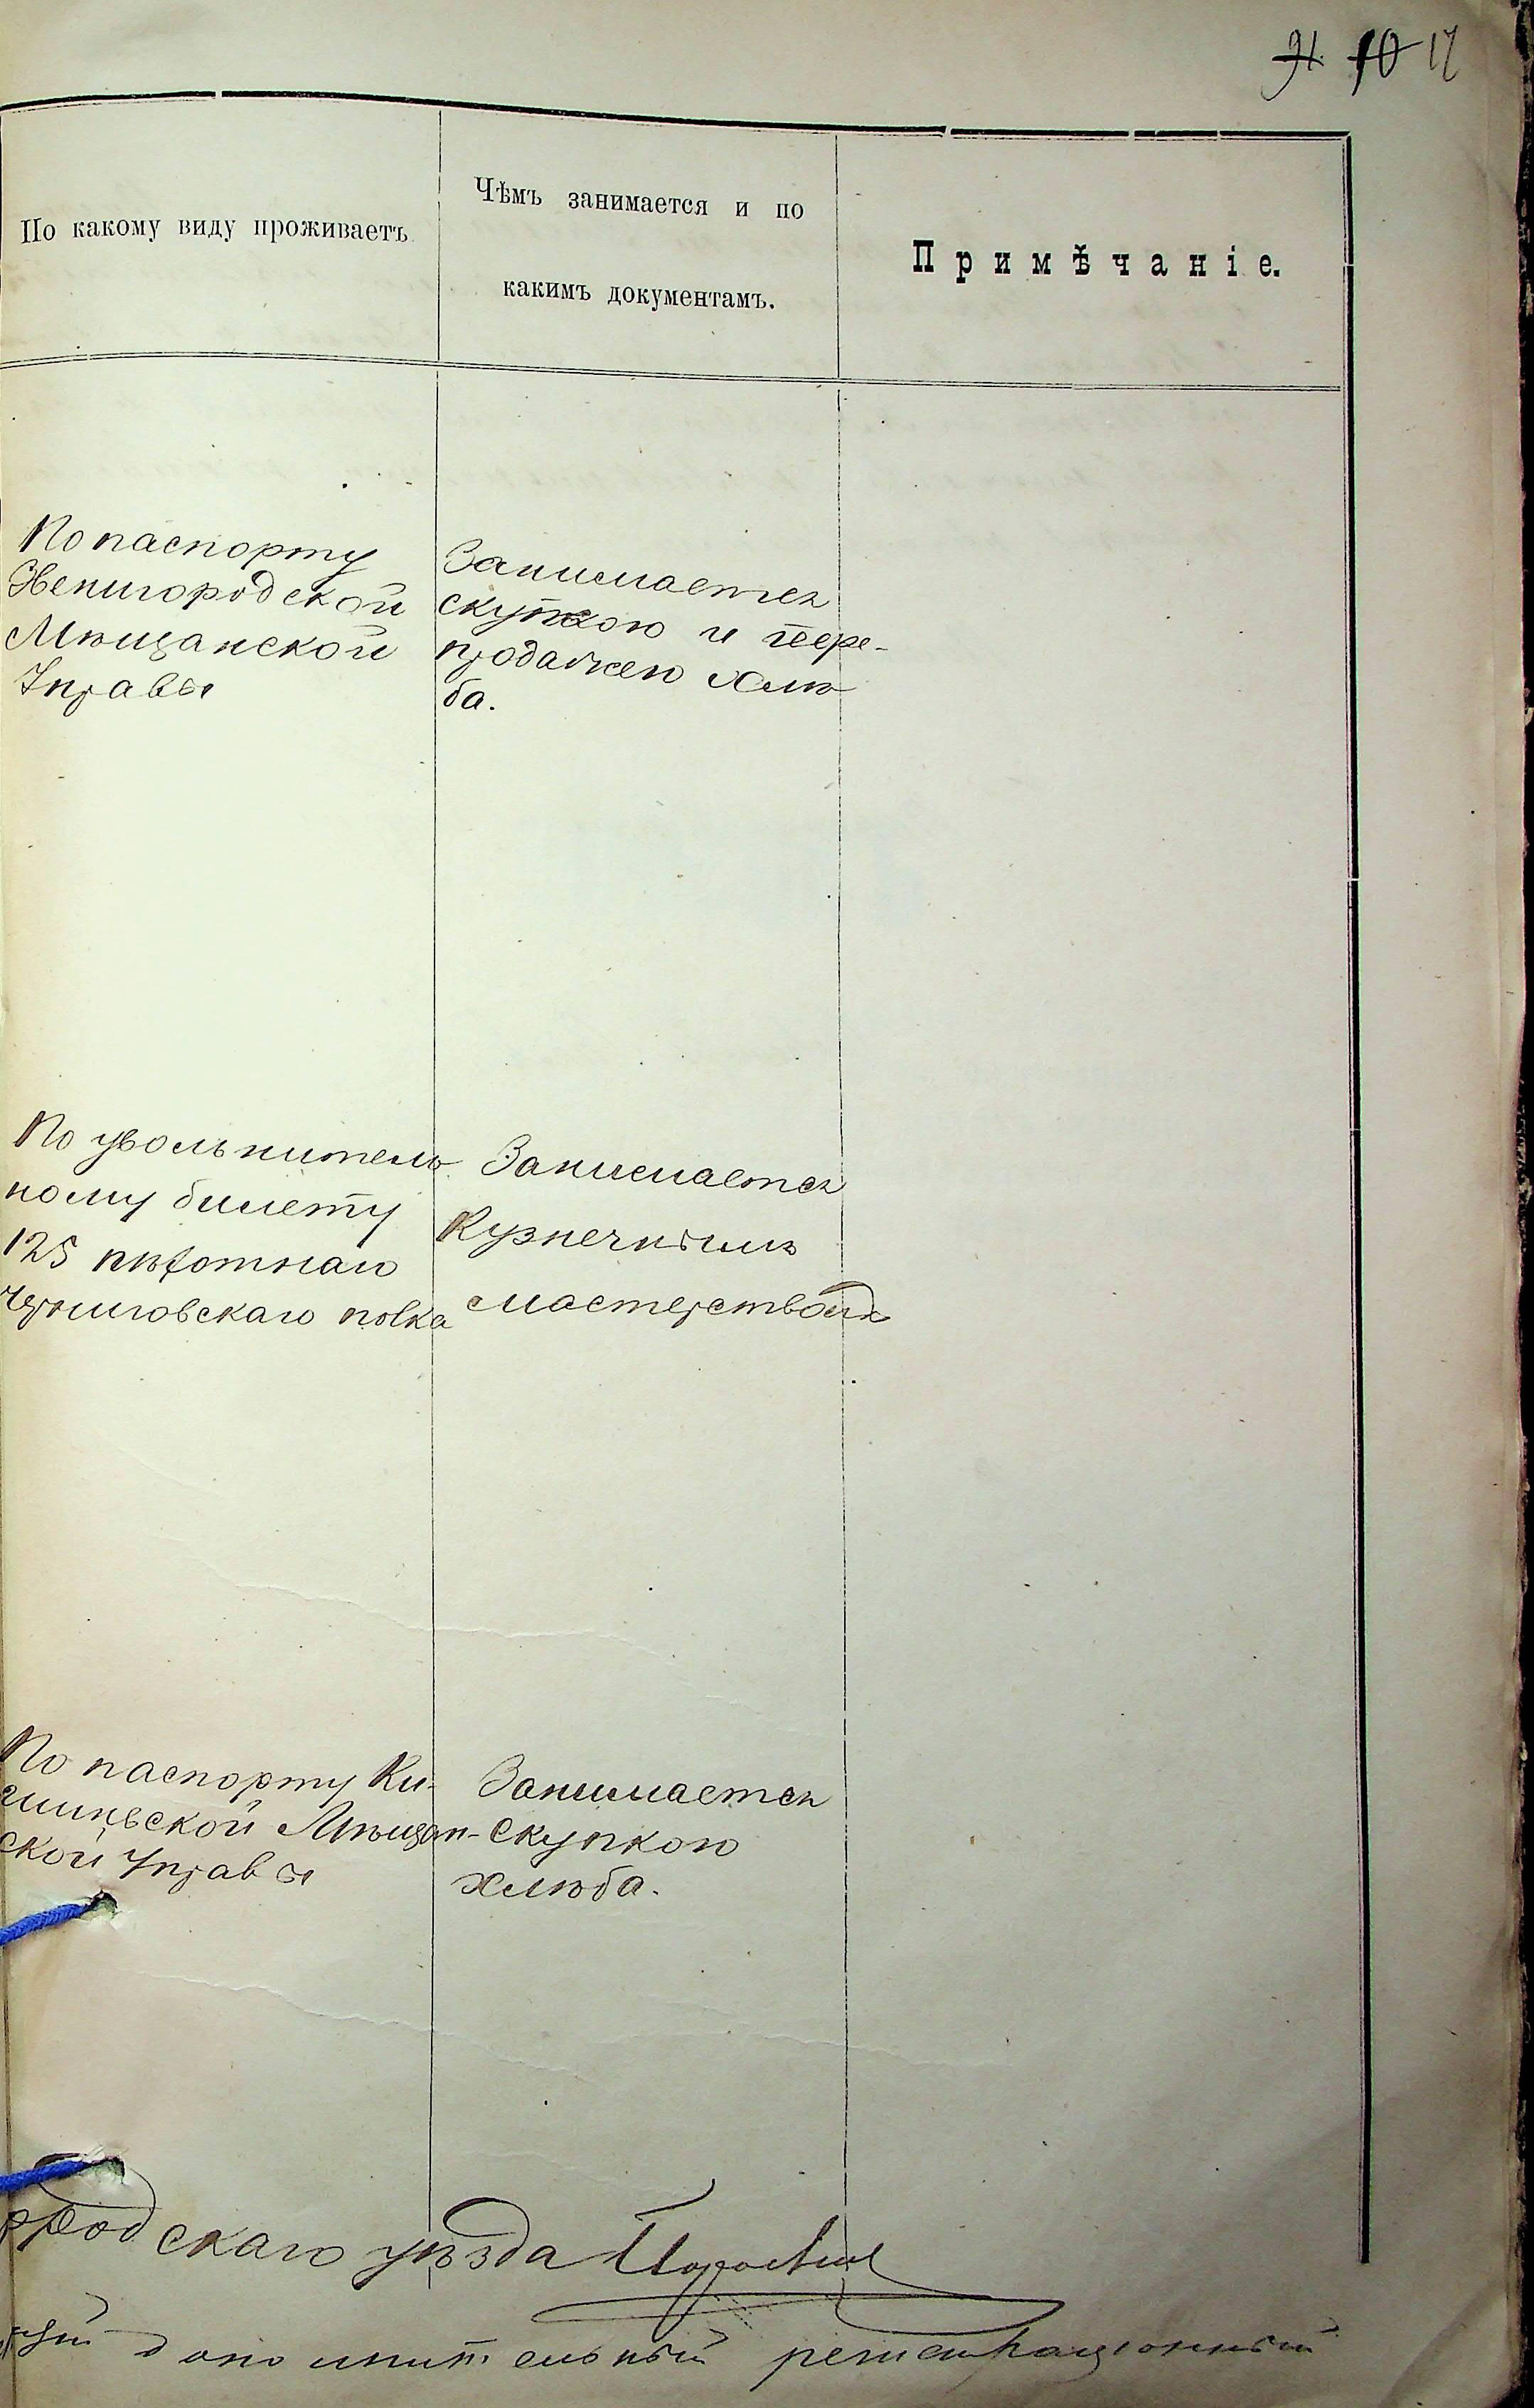 91. 10 17
По какому виду проживаетъ
Чѣмъ занимается и по
какимъ документамъ.
Примѣчаніе.
По паспорту
Звенигородской
Мѣщанской
Управы
Занимается
скупкою и пере-
продажею хлѣ
ба.
По увольнитель
ному билету
125 пѣхотнаго
Черниговскаго полка
Занимается
Кузнечнымъ
мастерствомъ
По паспорту Ки-
шиневской Мѣщан-
ской Управы
Занимается
скупкою
хлѣба.
родскаго уѣзда
дополнительный регистраціонный